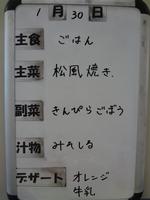 1月30日
主食 ごはん
主菜 松風焼き.
副菜 きんぴらごぼう
汁物 みそしる
デザート オレンジ
牛乳